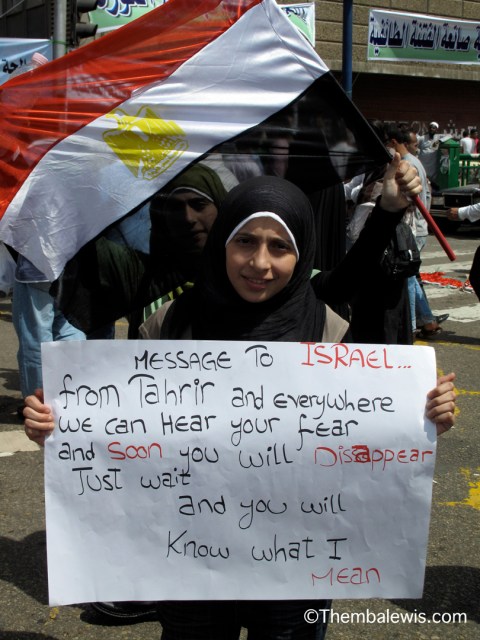 الفتنة الطائفية
MESSAGE TO ISRAEL...
from Tahrir and everywhere
we can Hear your fear
and Soon you will Disappear
Just wait
and you will
Know what I
MEAN
©Thembalewis.com